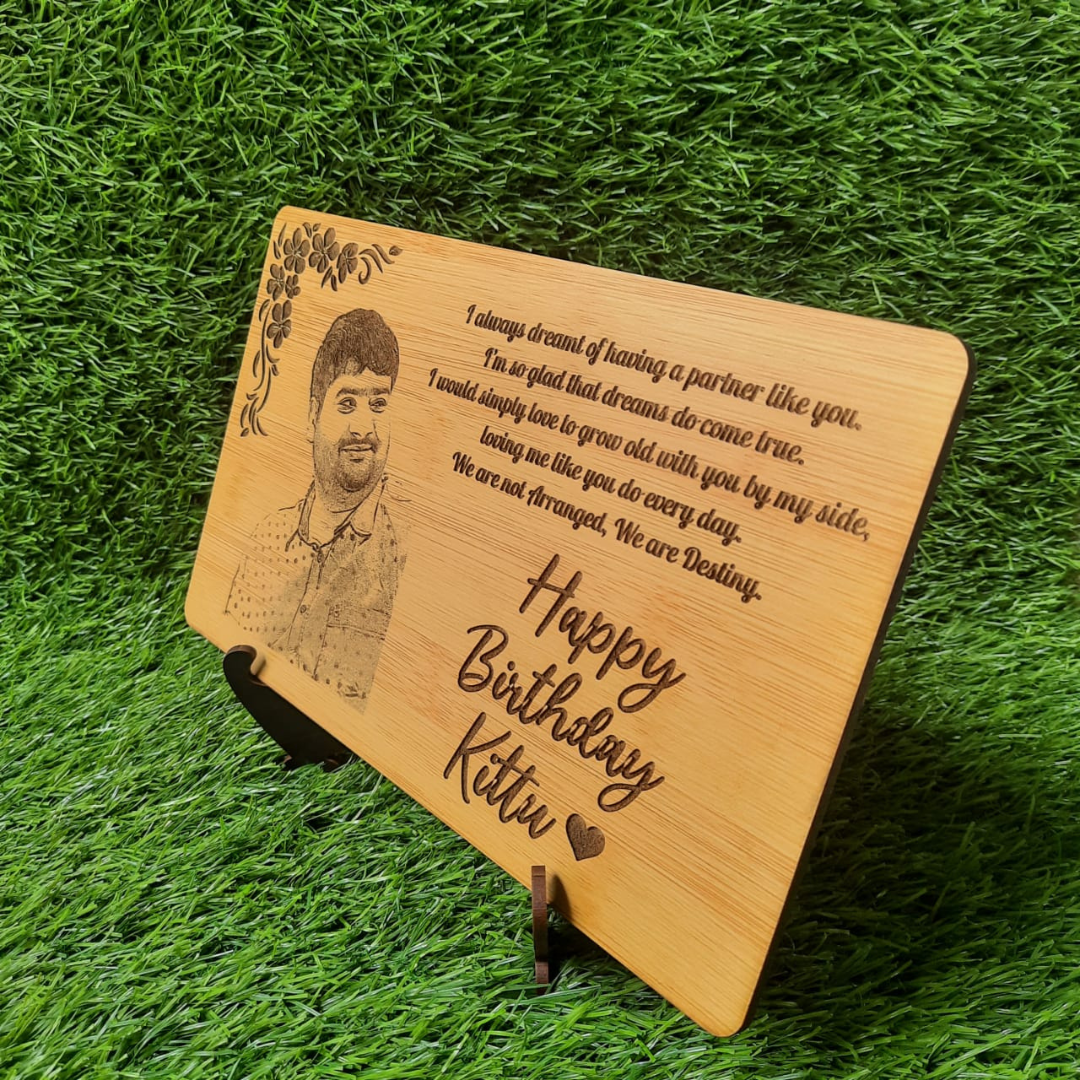 I always dreamt of having a partner like you.
I'm so glad that dreams do come true.
I would simply love to grow old with you by my side,
loving me like you do every day.
We are not Arranged, We are Destiny.
Happy
Birthday
Kittu